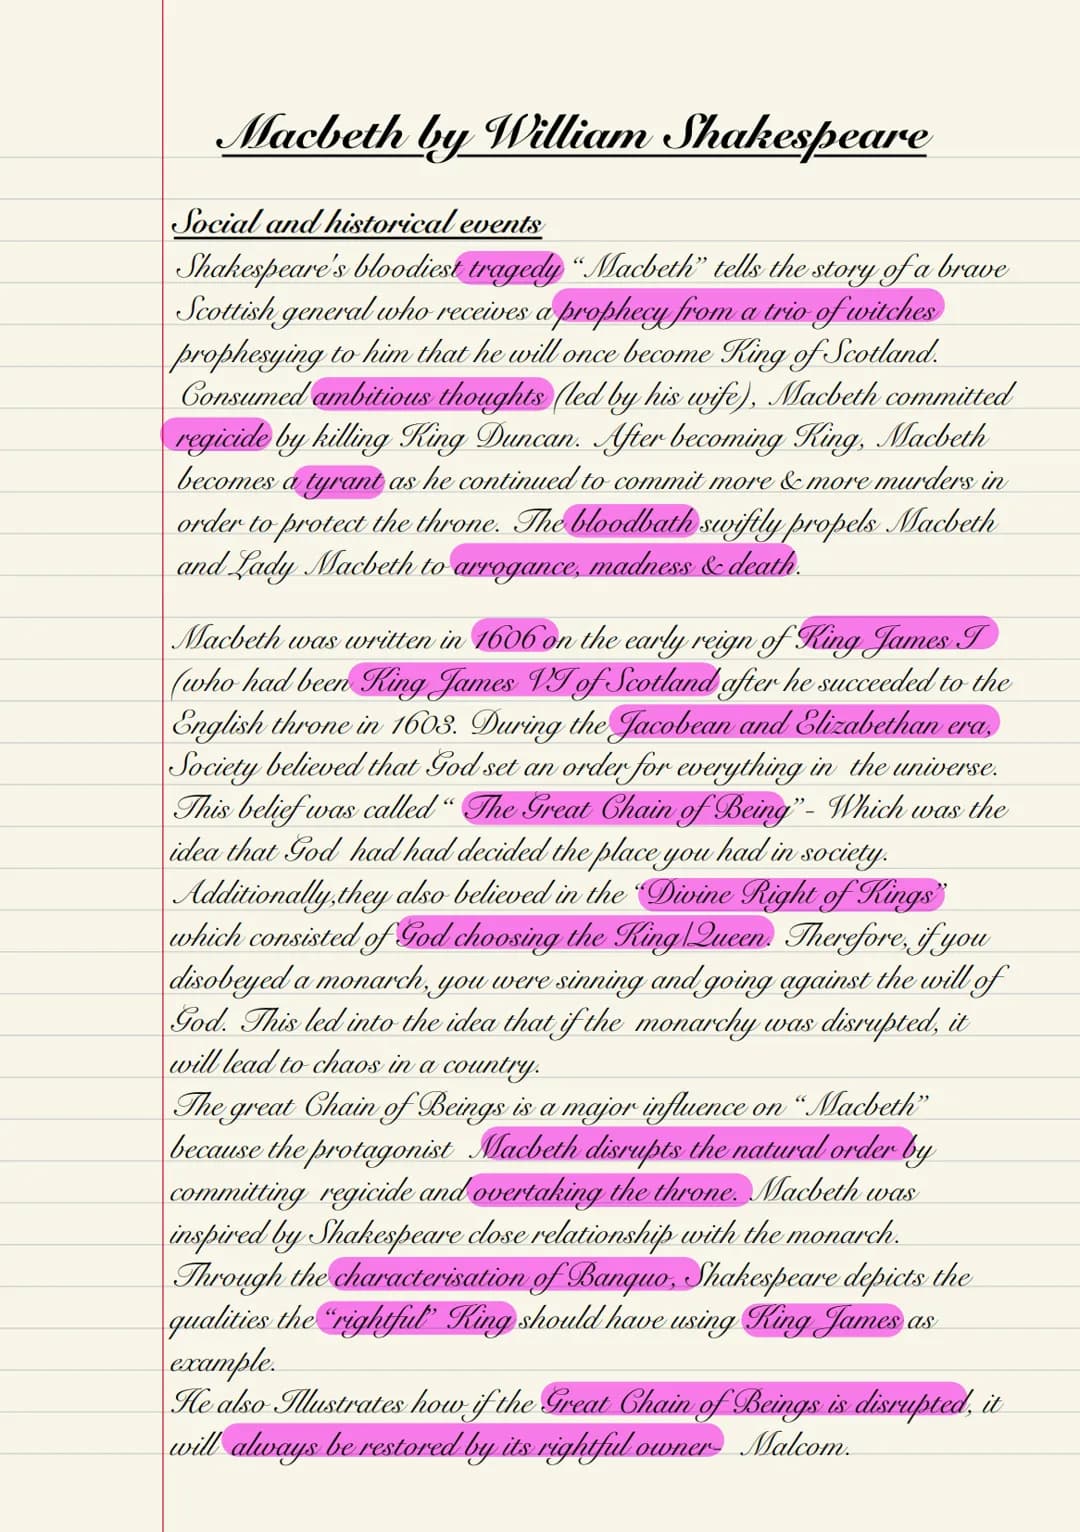 Macbeth by William Shakespeare
Social and historical events
Shakespeare's bloodiest tragedy “Macbeth” tells the story of a brave
Scottish general who receives a prophecy from a trio of witches
prophesying to him that he will once become King of Scotland.
Consumed ambitious thoughts (led by his wife), Macbeth committed
regicide by killing King Duncan. After becoming King, Macbeth
becomes a tyrant as he continued to commit more & more murders in
order to protect the throne. The bloodbath swiftly propels Macbeth
and Lady Macbeth to arrogance, madness & death.
Macbeth was written in 1606 on the early reign of King James I
(who had been King James VI of Scotland after he succeeded to the
English throne in 1603. During the Jacobean and Elizabethan era,
Society believed that God set an order for everything in the universe.
This belief was called “ The Great Chain of Being”- Which was the
idea that God had had decided the place you had in society.
Additionally,they also believed in the “Divine Right of Kings”
which consisted of God choosing the King|Queen. Therefore, if you
disobeyed a monarch, you were sinning and going against the will of
God. This led into the idea that if the monarchy was disrupted, it
will lead to chaos in a country.
The great Chain of Beings is a major influence on “Macbeth”
because the protagonist Macbeth disrupts the natural order by
committing regicide and overtaking the throne. Macbeth was
inspired by Shakespeare close relationship with the monarch.
Through the characterisation of Banquo, Shakespeare depicts the
qualities the “rightful” King should have using King James as
example.
He also Illustrates how if the Great Chain of Beings is disrupted, it
will always be restored by its rightful owner- Malcom.